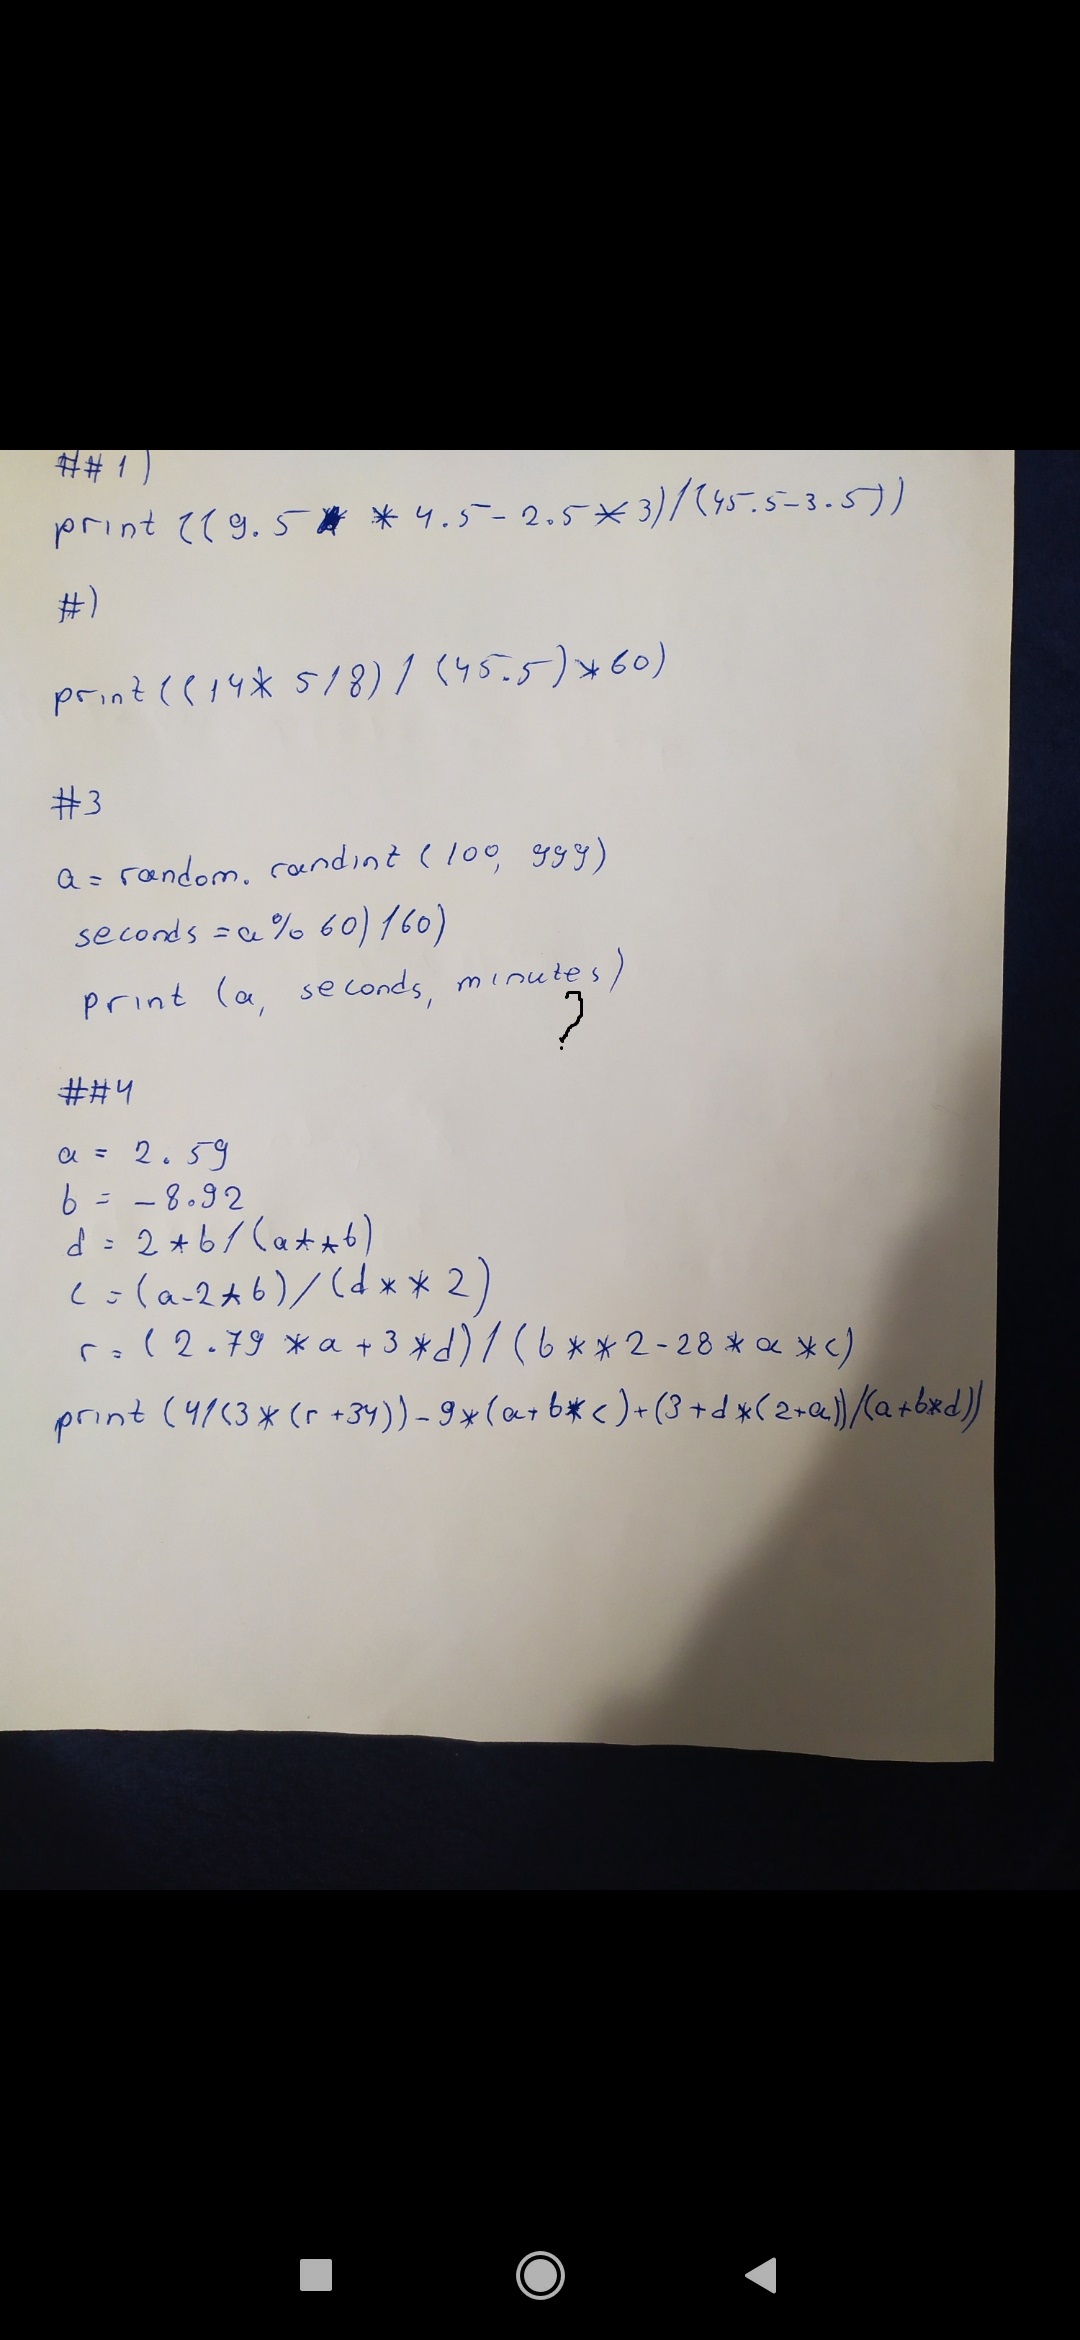 ##1)
print ((9.5 * 4.5-2.5*3)/(45.5-3.5))
#)
print((14*5/8)/(45.5)*60)
#3
a=random.randint(100, 999)
seconds=a%60)/60)
print (a, seconds, minutes)
?
##4
a = 2.59
b = -8.92
d = 2*b/(a**b)
c =(a-2*b)/(d**2)
r=(2.79*a+3*d)/(b**2-28*a*c)
print (4/(3*(r+34))-9*(a+b*c)+(3+d*(2+a))/(a+b*d))